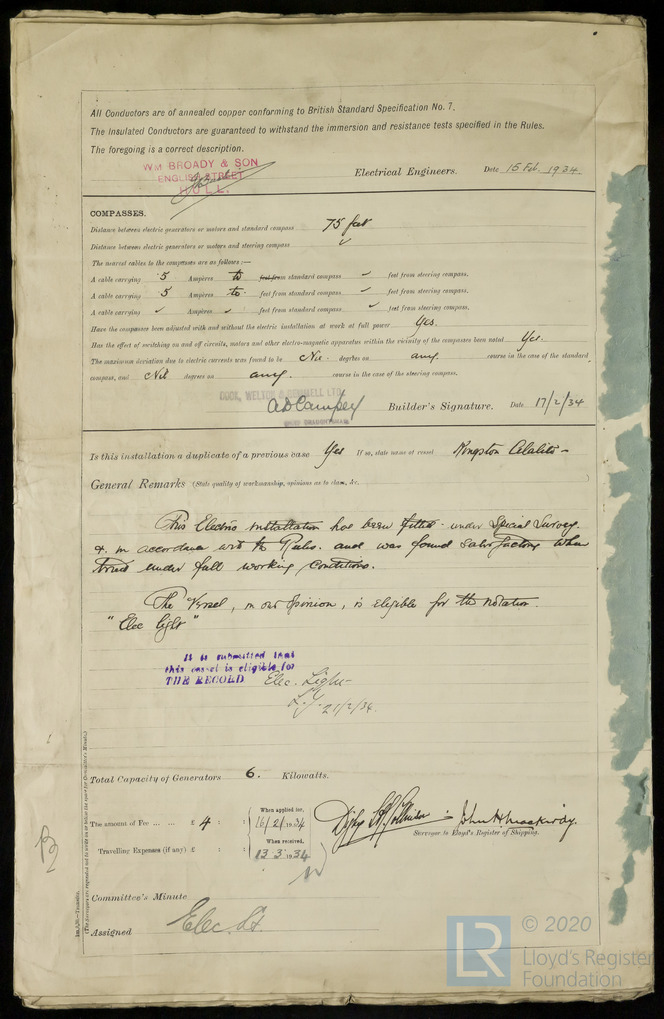 All Conductors are of annealed copper conforming to British Standard Specification No. 7.
The Insulated Conductors are guaranteed to withstand the immersion and resistance tests specified in the Rules.
The foregoing is a correct description.
WM BROADY & SON
ENGLISH STREET
HULL.
Electrical Engineers. Date 15 Feb. 1934
COMPASSES.
Distance between electric generators or motors and standard compass 75 feet
Distance between electric generators or motors and steering compass ✓
The nearest cables to the compasses are as follows:—
A cable carrying .5 Ampères to feet from standard compass ✓ feet from steering compass.
A cable carrying .5 Ampères to feet from standard compass ✓ feet from steering compass.
A cable carrying ✓ Ampères ✓ feet from standard compass ✓ feet from steering compass.
Have the compasses been adjusted with and without the electric installation at work at full power Yes.
Has the effect of switching on and off circuits, motors and other electro-magnetic apparatus within the vicinity of the compasses been noted Yes.
The maximum deviation due to electric currents was found to be Nil degrees on any course in the case of the standard
compass, and Nil degrees on any. course in the case of the steering compass.
Builder's Signature. Date 17/2/34
Is this installation a duplicate of a previous case Yes If so, state name of vessel Kingston
General Remarks (State quality of workmanship, opinions as to class, &c.
This Electric installation has been fitted under Special Survey
& in accordance with the Rules. and was found satisfactory when
tried under full working conditions.
The Vessel, in our opinion, is eligible for the notation.
"Elec light"
It is submitted that
this vessel is eligible for
THE RECORD Elec. Light
21/2/34.
Total Capacity of Generators 6. Kilowatts.
The amount of Fee ... ... £ 4 : :
When applied for,
16/2/1934
When received,
13.3.1934
Travelling Expenses (if any) £ : :
Surveyor to Lloyd's Register of Shipping.
Committee's Minute
Assigned Elec. Lt
LR © 2020
Lloyd's Register
Foundation